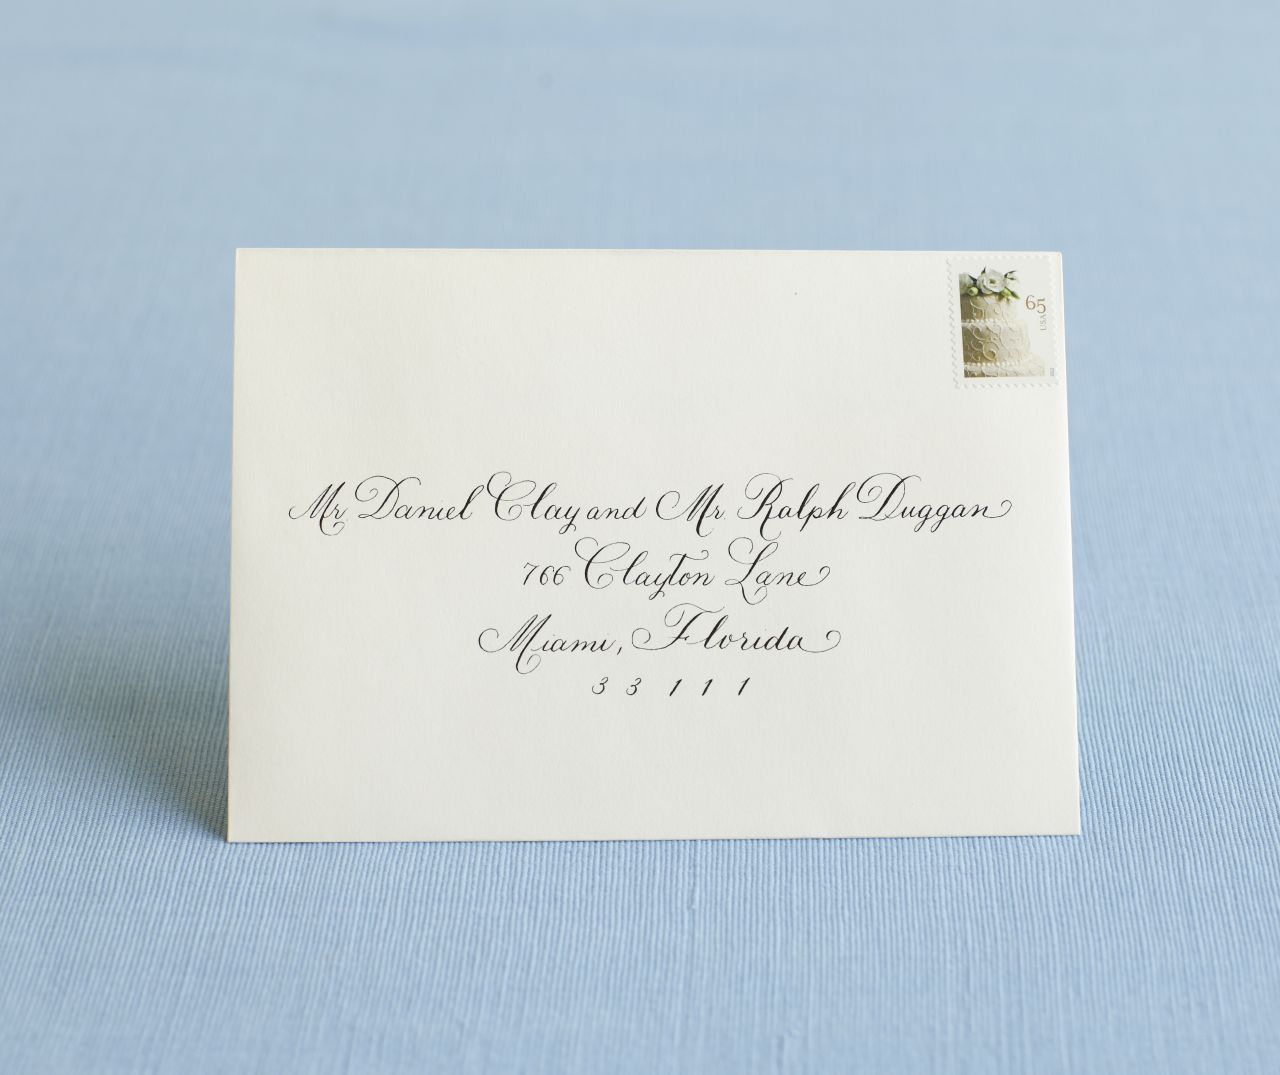 65
USA
Mr Daniel Clay and Mr. Ralph Duggan
766 Clayton Lane
Miami, Florida
33111